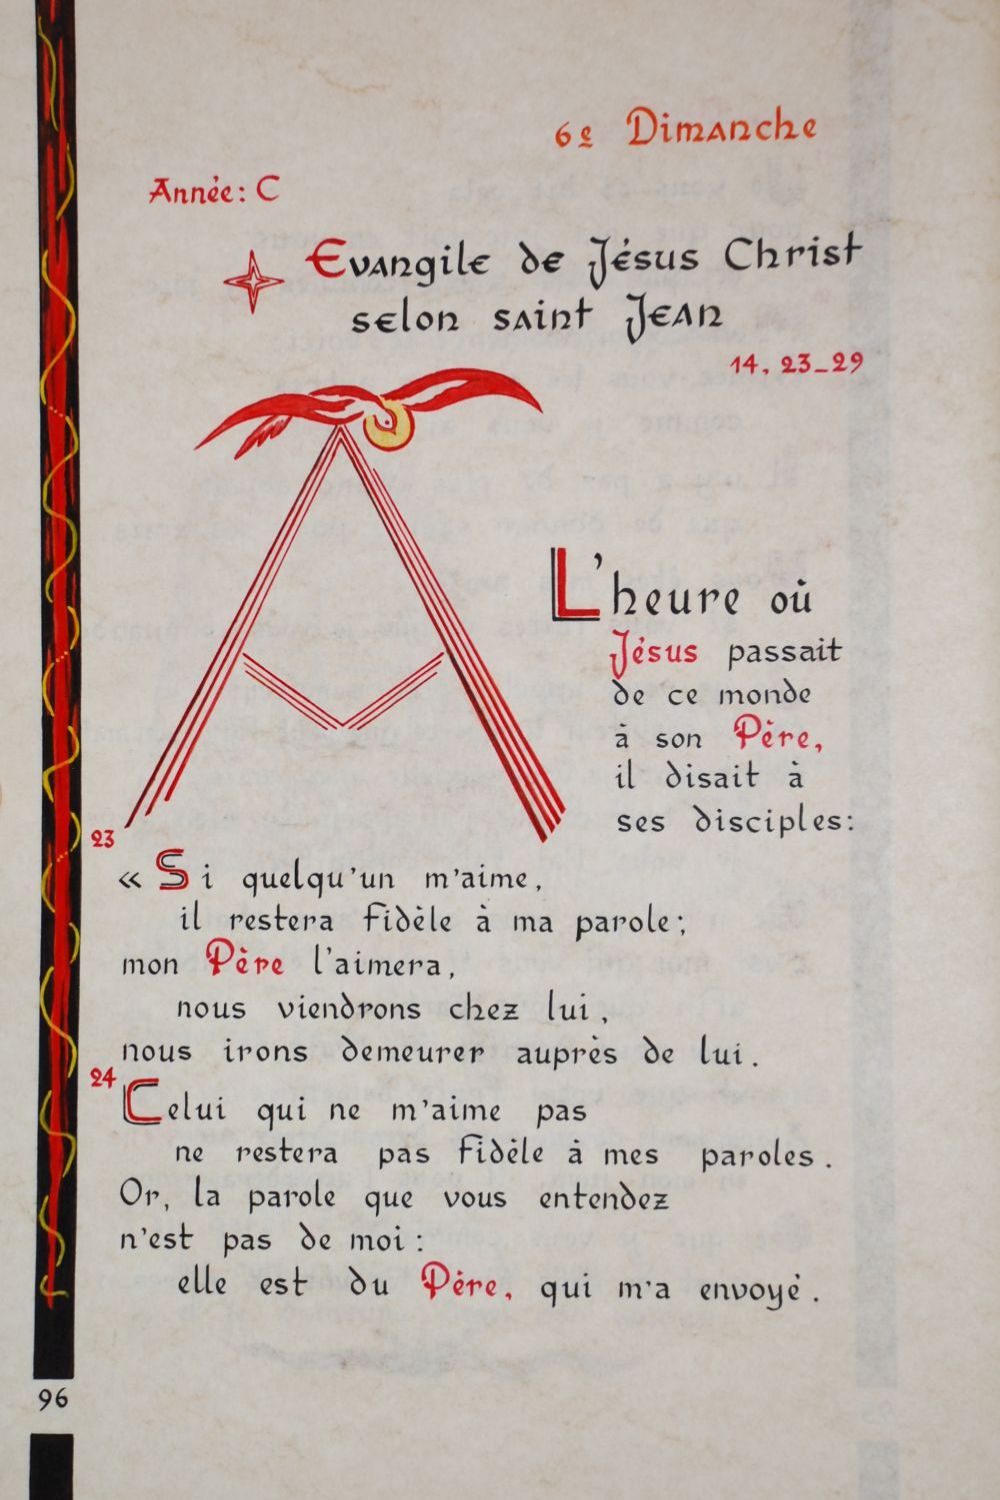 6e Dimanche
Année: C
Evangile de Jésus Christ
selon saint JEAN
14, 23-29
A L'heure où
Jésus passait
de ce monde
à son Père,
il disait à
ses disciples:
23
« Si quelqu'un m'aime,
il restera fidèle à ma parole;
mon Père l'aimera,
nous viendrons chez lui,
nous irons demeurer auprès de lui.
24
Celui qui ne m'aime pas
ne restera pas fidèle à mes paroles.
Or, la parole que vous entendez
n'est pas de moi:
elle est du Père, qui m'a envoyé.
96